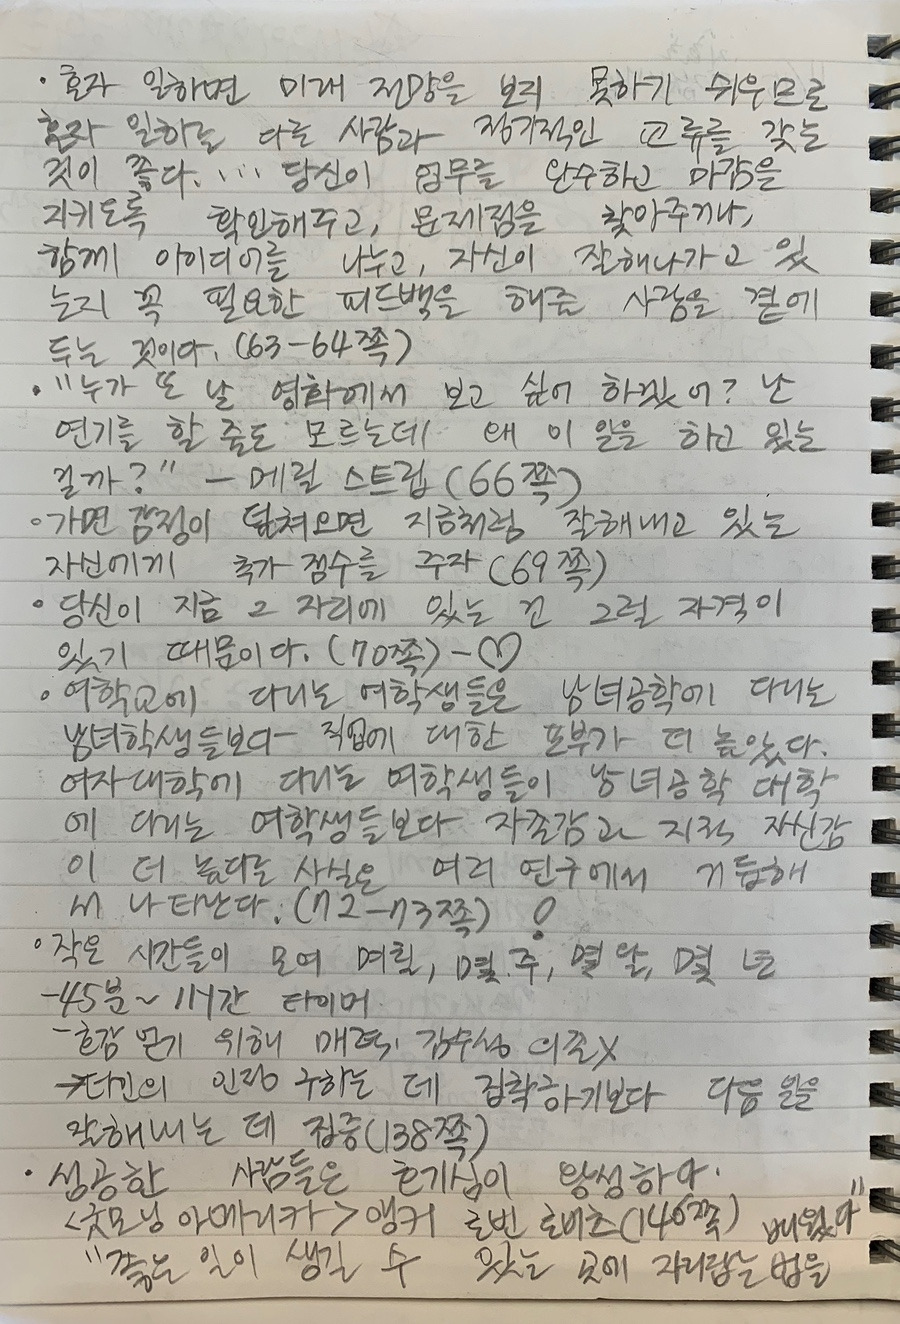 · 혼자 일하면 미래 전망을 보지 못하기 쉬우므로
혼자 일하는 다른 사람과 정기적인 교류를 갖는
것이 좋다. ... 당신이 업무를 완수하고 마감을
지키도록 확인해주고, 문제점을 찾아주거나,
함께 아이디어를 나누고, 자신이 잘해나가고 있
는지 꼭 필요한 피드백을 해줄 사람을 곁에
두는 것이다. (63-64쪽)
· "누가 또 날 영화에서 보고 싶어 하겠어? 난
연기를 할 줄도 모르는데 왜 이 일을 하고 있는
걸까?" - 메릴 스트립 (66쪽)
· 가면 감정이 덮쳐오면 지금처럼 잘해내고 있는
자신에게 추가 점수를 주자 (69쪽)
· 당신이 지금 그 자리에 있는 건 그럴 자격이
있기 때문이다. (70쪽) - ♡
· 여학교에 다니는 여학생들은 남녀공학에 다니는
남녀학생들보다 직업에 대한 포부가 더 높았다.
여자대학에 다니는 여학생들이 남녀공학 대학
에 다니는 여학생들보다 자존감과 지적 자신감
이 더 높다는 사실은 여러 연구에서 거듭해
서 나타난다. (72-73쪽) !
· 작은 시간들이 모여 며칠, 몇 주, 몇 달, 몇 년
-45분~1시간 타이머
-호감 얻기 위해 매력, 감수성 의존X
→타인의 인정 구하는 데 집착하기보다 다음 일을
잘해내는 데 집중(138쪽)
· 성공한 사람들은 호기심이 왕성하다.
<굿모닝 아메리카> 앵커 로빈 로버츠(146쪽) 배웠다"
"좋은 일이 생길 수 있는 곳에 자리잡는 법을